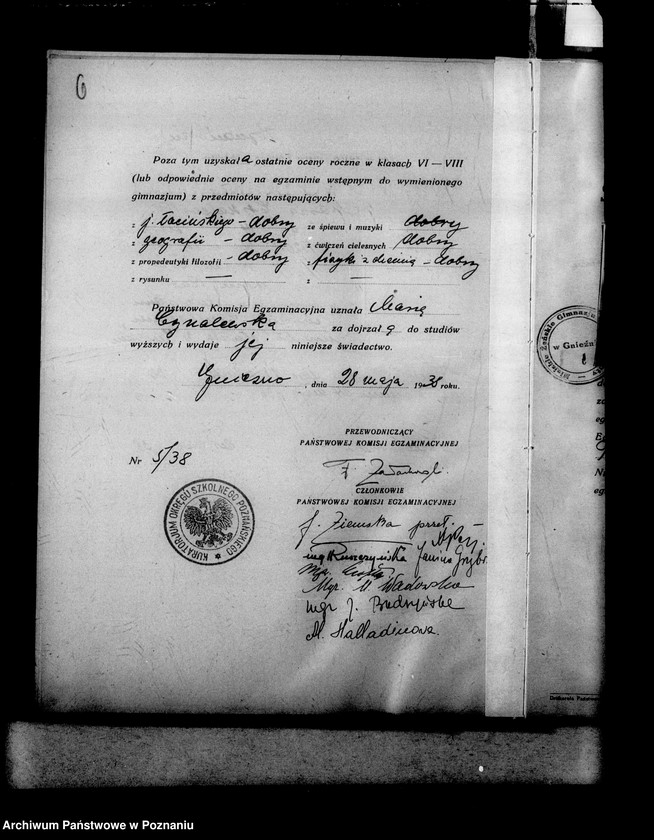 6
Poza tym uzyskała ostatnie oceny roczne w klasach VI — VIII
(lub odpowiednie oceny na egzaminie wstępnym do wymienionego
gimnazjum) z przedmiotów następujących:
z j. łacińskiego – dobry ze śpiewu i muzyki dobry
z geografii – dobry z ćwiczeń cielesnych dobry
z propedeutyki filozofii – dobry z fizyki z chemią – dobry
z rysunku — z —
Państwowa Komisja Egzaminacyjna uznała Marię
za dojrzałą do studiów
wyższych i wydaje jej niniejsze świadectwo.
Gniezno, dnia 28 maja 1938 roku.
PRZEWODNICZĄCY
PAŃSTWOWEJ KOMISJI EGZAMINACYJNEJ
Nr 5/38
CZŁONKOWIE
PAŃSTWOWEJ KOMISJI EGZAMINACYJNEJ
KURATORJUM OKRĘGU SZKOLNEGO POZNAŃSKIEGO
J. Ziemska
Janina
Mgr. M. Wadowska
mgr J.
M. Halladinowa.
w Gnieźnie
Archiwum Państwowe w Poznaniu